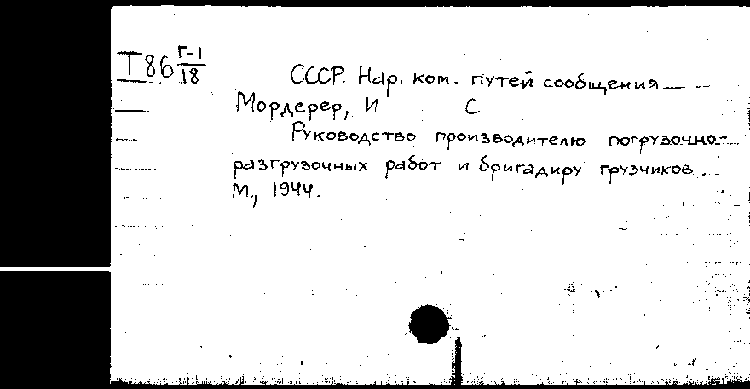 Т86 Г-1/18
СССР. Нар. ком. путей сообщения
Мордерер, И С
Руководство производителю погрузочно-
разгрузочных работ и бригадиру грузчиков.
М., 1944.